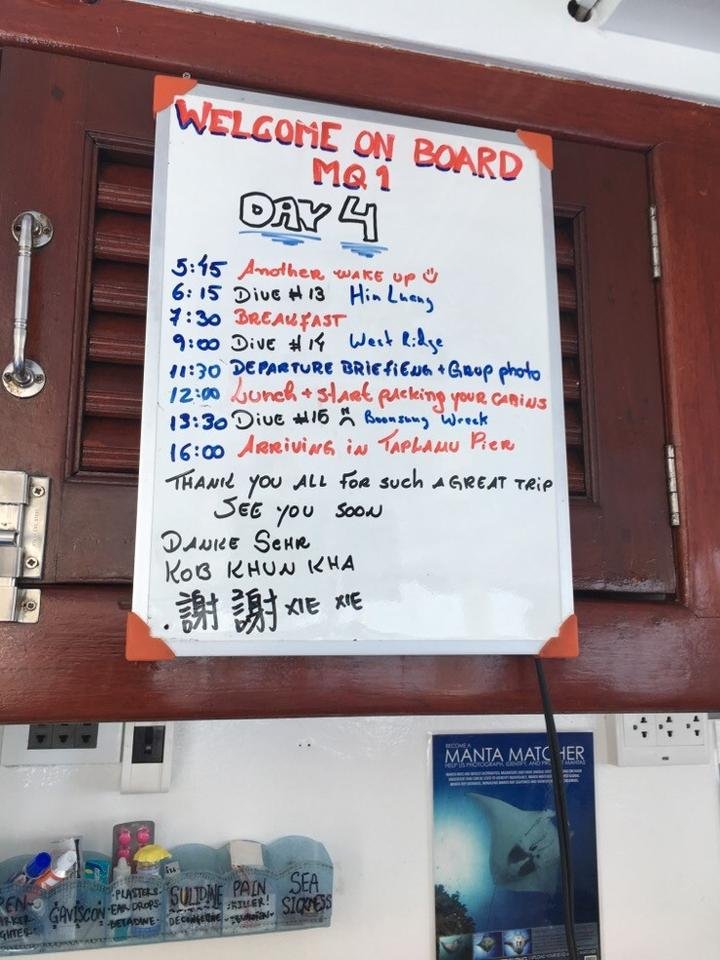 WELCOME ON BOARD
MQ1
DAY 4
5:45 Another WAKE UP
6:15 DIVE #13 Hin Luang
7:30 BREAKFAST
9:00 DIVE #14 West Ridge
11:30 DEPARTURE BRIEFIENG + GROUP photo
12:00 Lunch + START packing YOUR CABINS
13:30 DIVE #15 Boonsung Wreck
16:00 ARRIVING in TAPLAMU PIER
THANK YOU ALL FOR such A GREAT TRIP
SEE YOU SOON
DANKE SEHR
KOB KHUN KHA
. 謝 謝 XIE XIE
BECOME A
MANTA MATCHER
GAVISCON
PLASTERS
EAR DROPS
BETADINE
SULIDINE
PAIN
KILLER!
SEA
SICKNESS